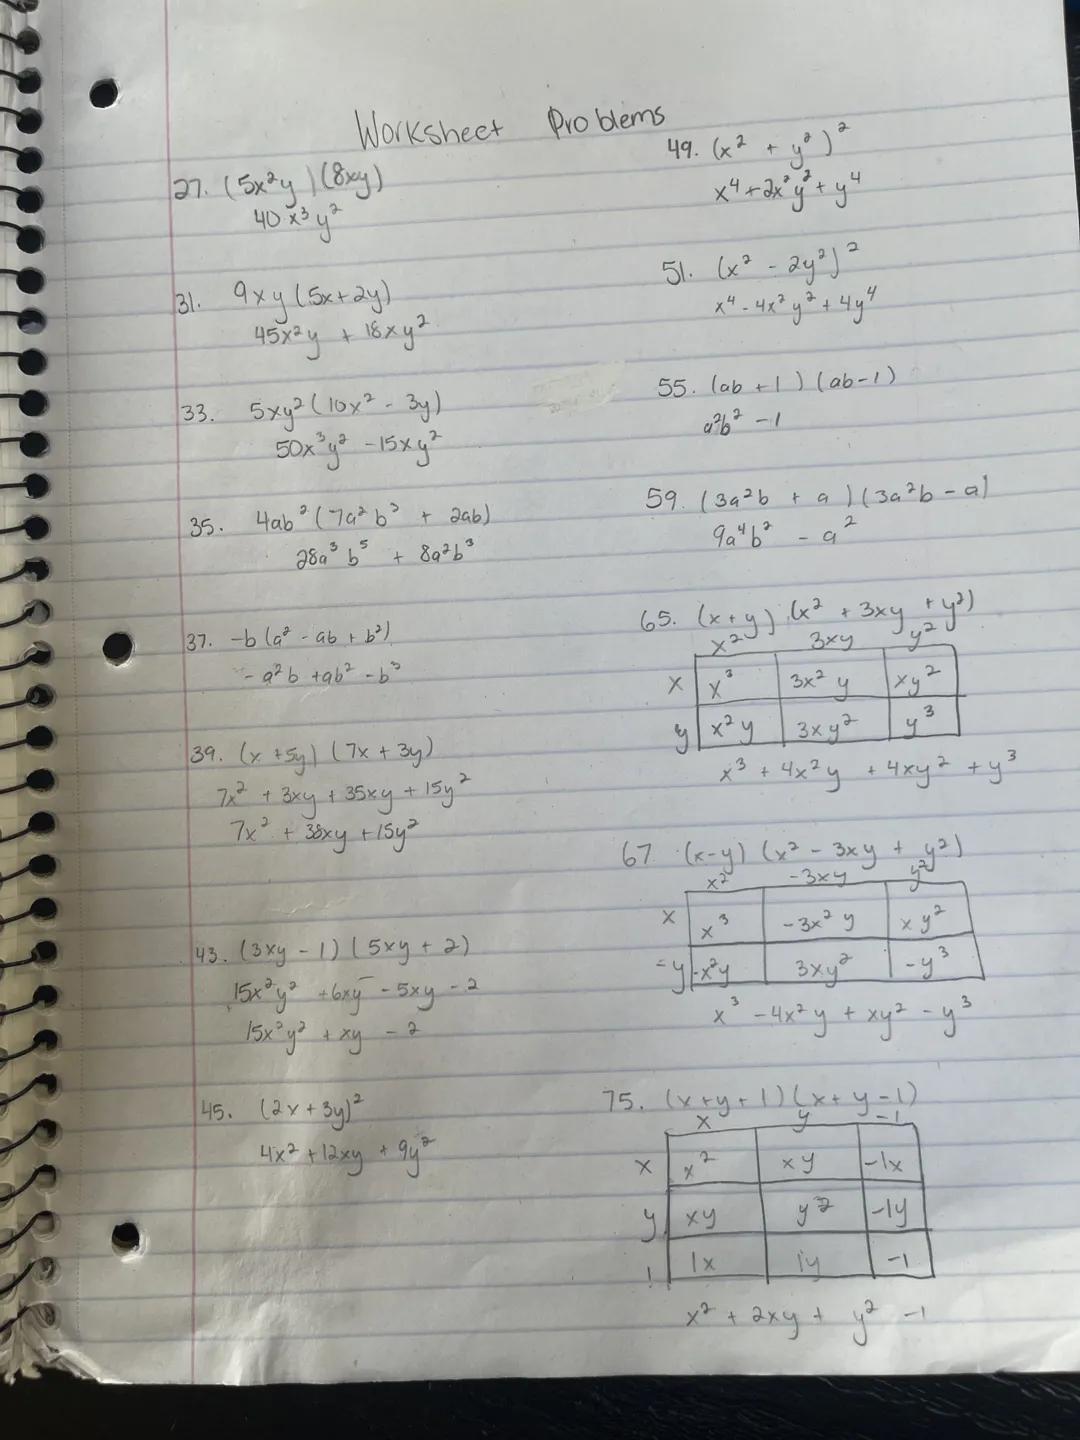 Worksheet Problems
27. (5x²y)(8xy)
40x³y²
31. 9xy(5x+2y)
45x²y + 18xy²
33. 5xy²(10x² - 3y)
50x³y² - 15xy²
35. 4ab²(7a²b³ + 2ab)
28a³b⁵ + 8a²b³
37. -b(a² - ab + b²)
- a²b + ab² - b³
39. (x + 5y)(7x + 3y)
7x² + 3xy + 35xy + 15y²
7x² + 38xy + 15y²
43. (3xy - 1)(5xy + 2)
15x²y² + 6xy - 5xy - 2
15x²y² + xy - 2
45. (2x + 3y)²
4x² + 12xy + 9y²
49. (x² + y²)²
x⁴ + 2x²y² + y⁴
51. (x² - 2y²)²
x⁴ - 4x²y² + 4y⁴
55. (ab + 1)(ab - 1)
a²b² - 1
59. (3a²b + a)(3a²b - a)
9a⁴b² - a²
65. (x+y)(x² + 3xy + y²)
x² 3xy y²
x x³ 3x²y xy²
y x²y 3xy² y³
x³ + 4x²y + 4xy² + y³
67 (x-y)(x² - 3xy + y²)
x² -3xy y²
x x³ -3x²y xy²
-y -x²y 3xy² -y³
x³ - 4x²y + xy² - y³
75. (x+y+1)(x+y-1)
x y -1
x x² xy -1x
y xy y² -1y
1 1x 1y -1
x² + 2xy + y² - 1